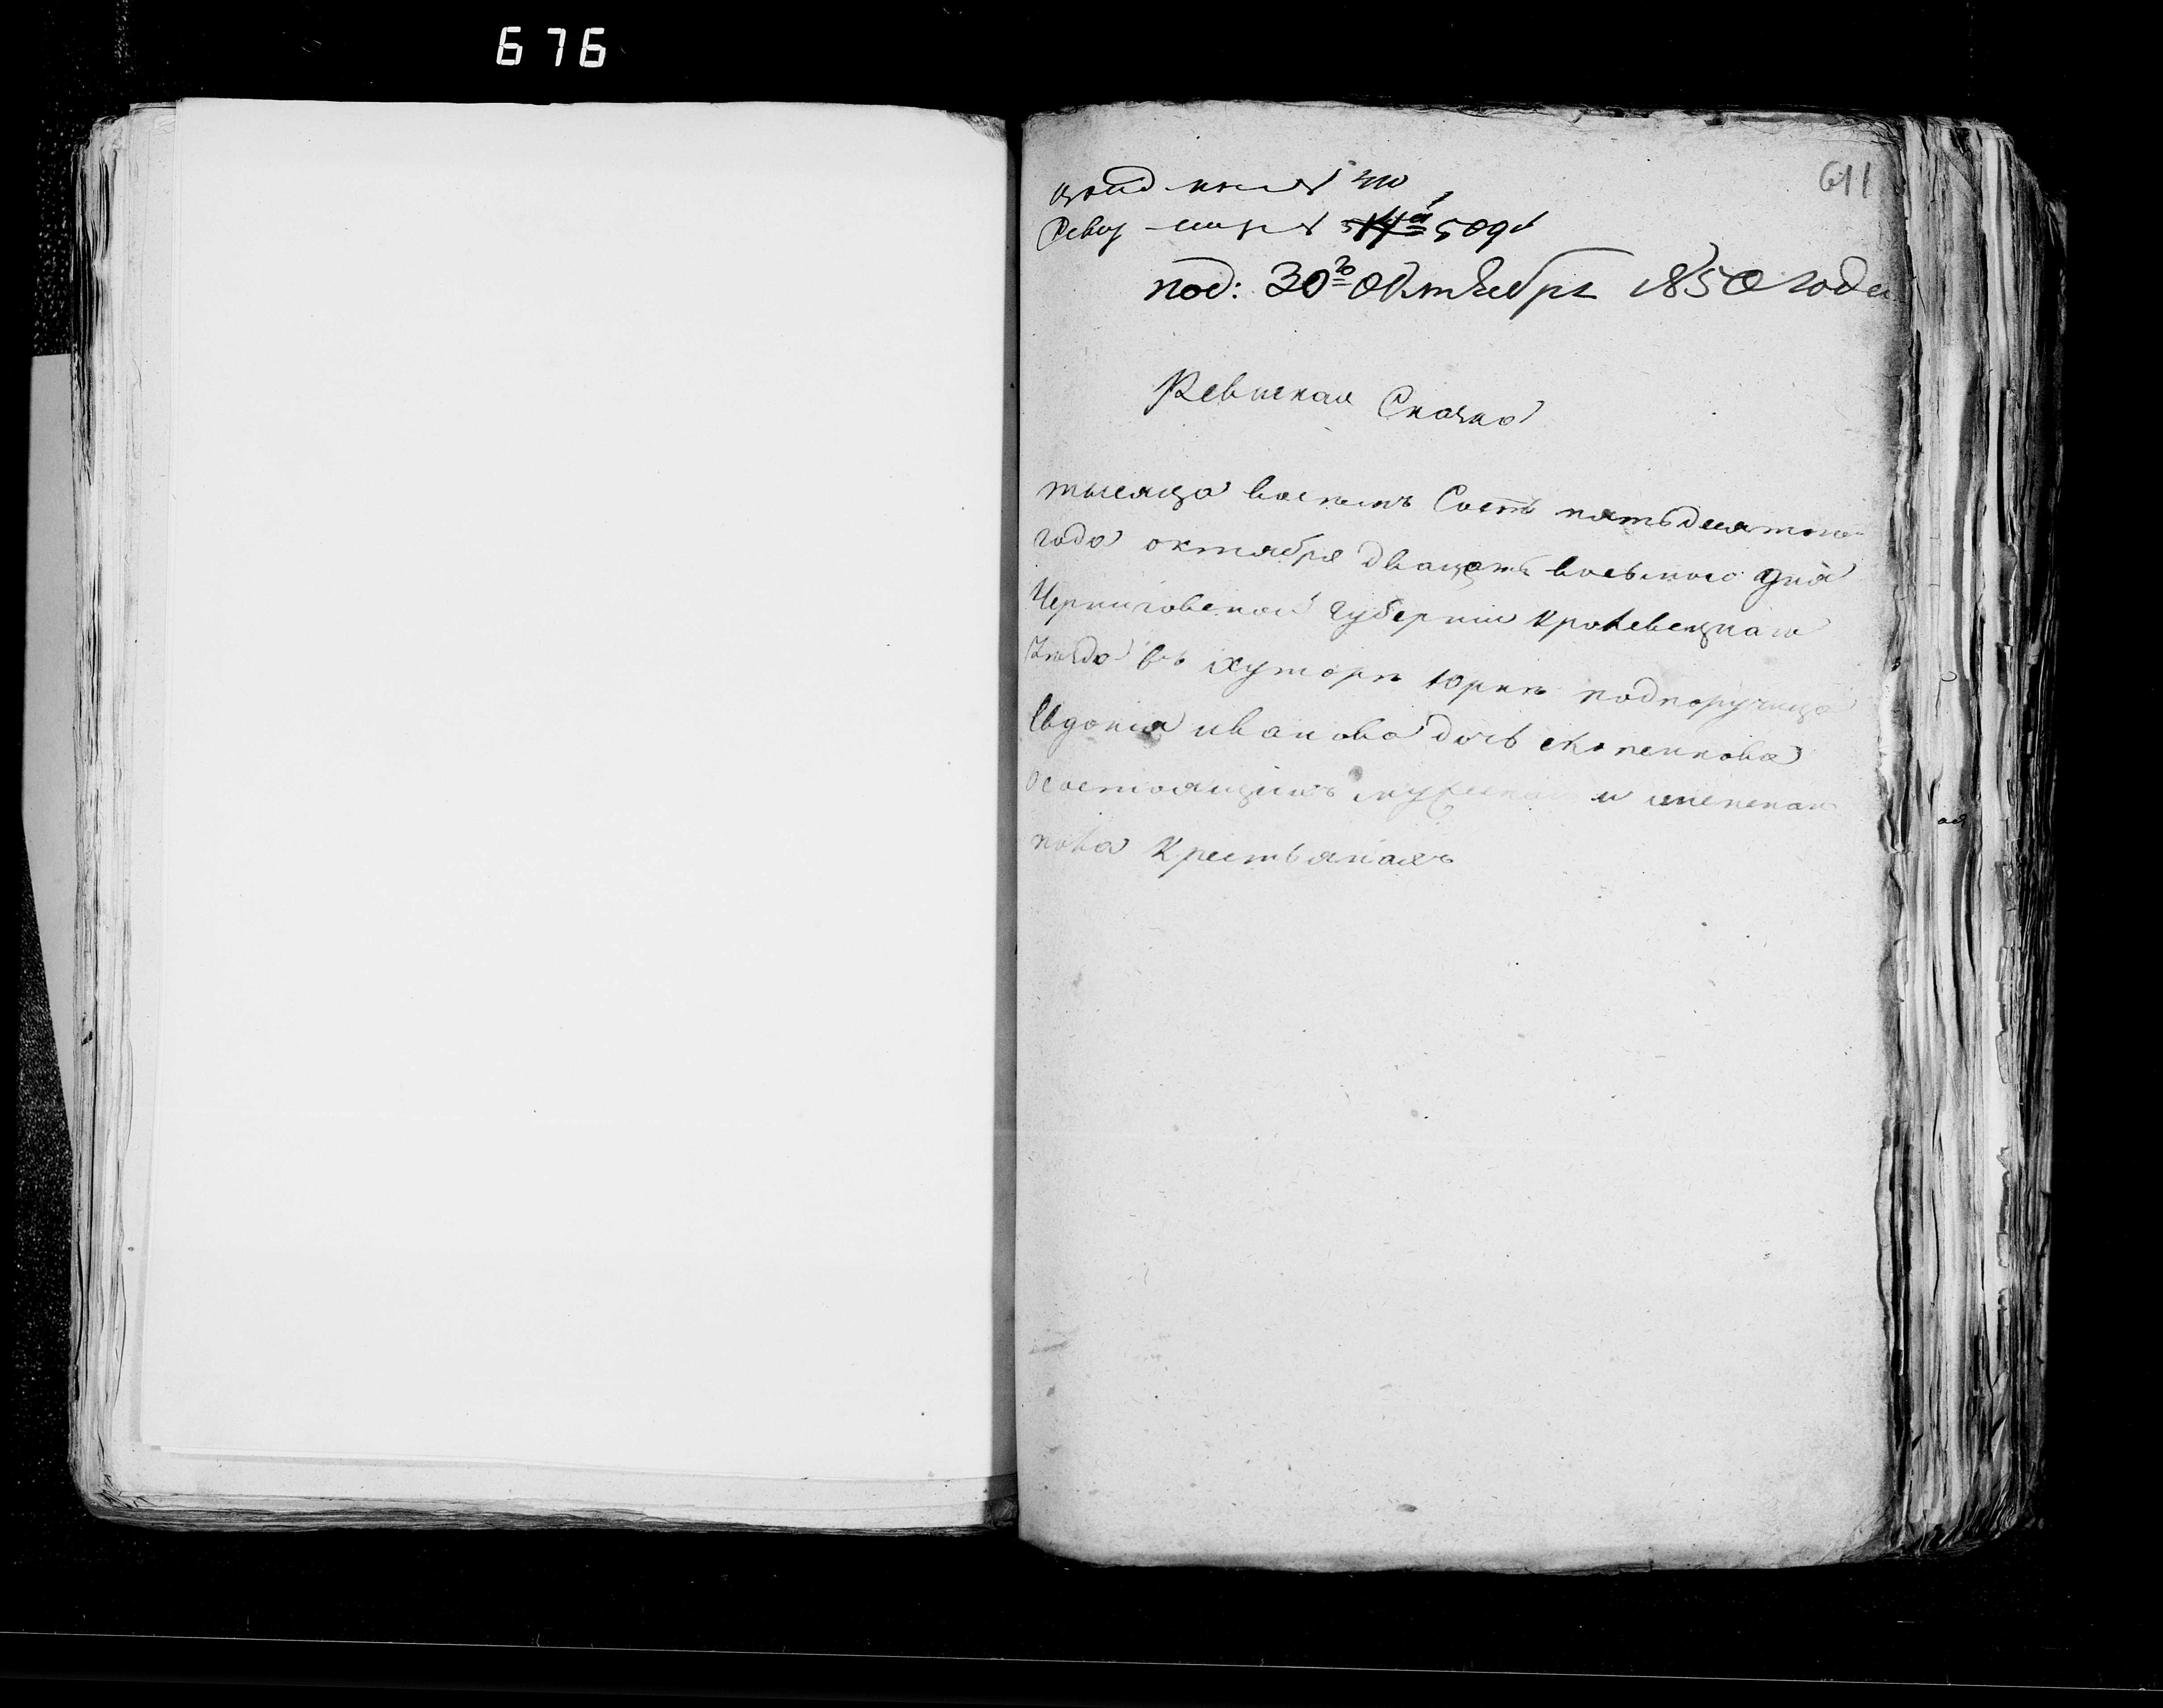 676
611
под: 30го Октября 1850 года
Ревиская Сказка
тысяща восемъ Сотъ пятьдесятого
года октября дващать восьмого дня
Черниговской губернии Кролевецкаго
уезда въ хуторе Юрке подпоручица
Евдокия иванова дочь
осостоящихъ мужеска и женска
пола Крестьянахъ